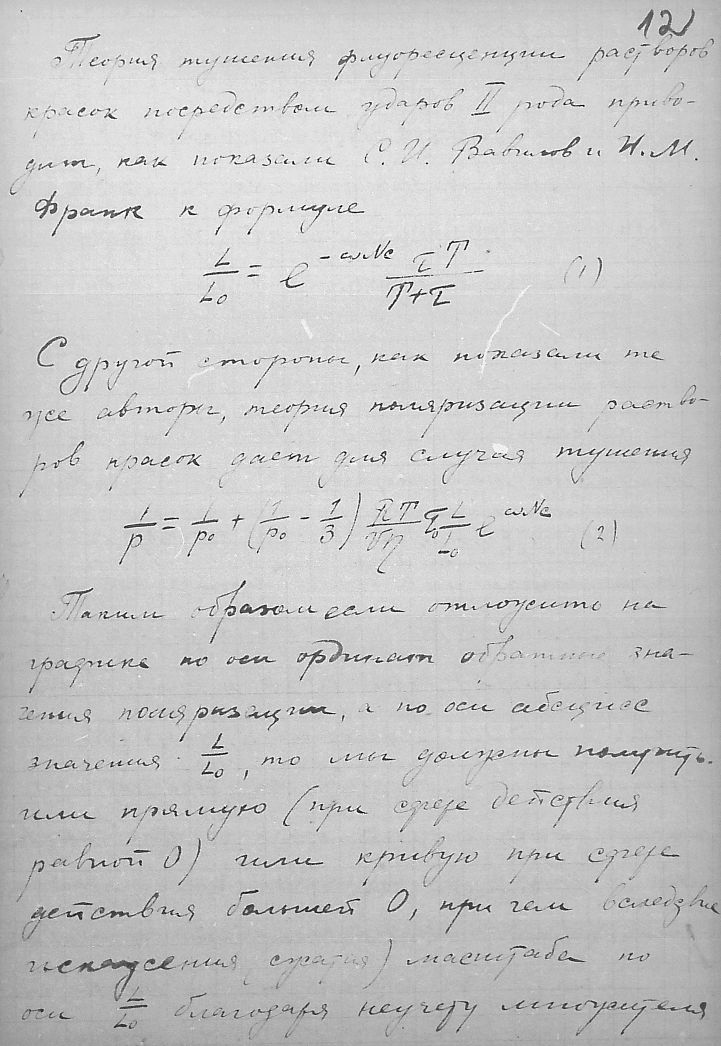 12
Теория тушения флуоресценции растворов
красок посредством ударов II рода приво-
дит, как показали С. И. Вавилов и И. М.
Франк к формуле
L/L₀ = e^{-ωNc} τT/(T+τ) (1)
С другой стороны, как показали те
же авторы, теория поляризации раство-
ров красок дает для случая тушения
1/p = 1/p₀ + (1/p₀ - 1/3) RT/Vη τ₀ L/L₀ e^{ωNc} (2)
Таким образом если отложить на
графике по оси ординат обратные зна-
чения поляризации, а по оси абсцисс
значения L/L₀, то мы должны получить
или прямую (при сфере действия
равной 0) или кривую при сфере
действия большей 0, при чем вследствие
искажения (сжатия) масштаба по
оси L/L₀ благодаря неучету множителя